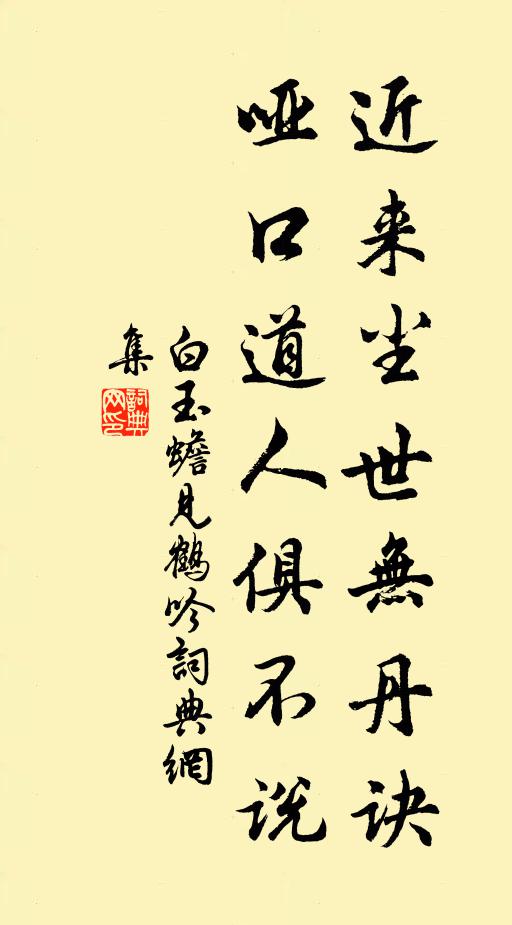 近来尘世無丹诀
哑口道人俱不说
白玉蟾見鶴吟詞典網
集
詞典
网印